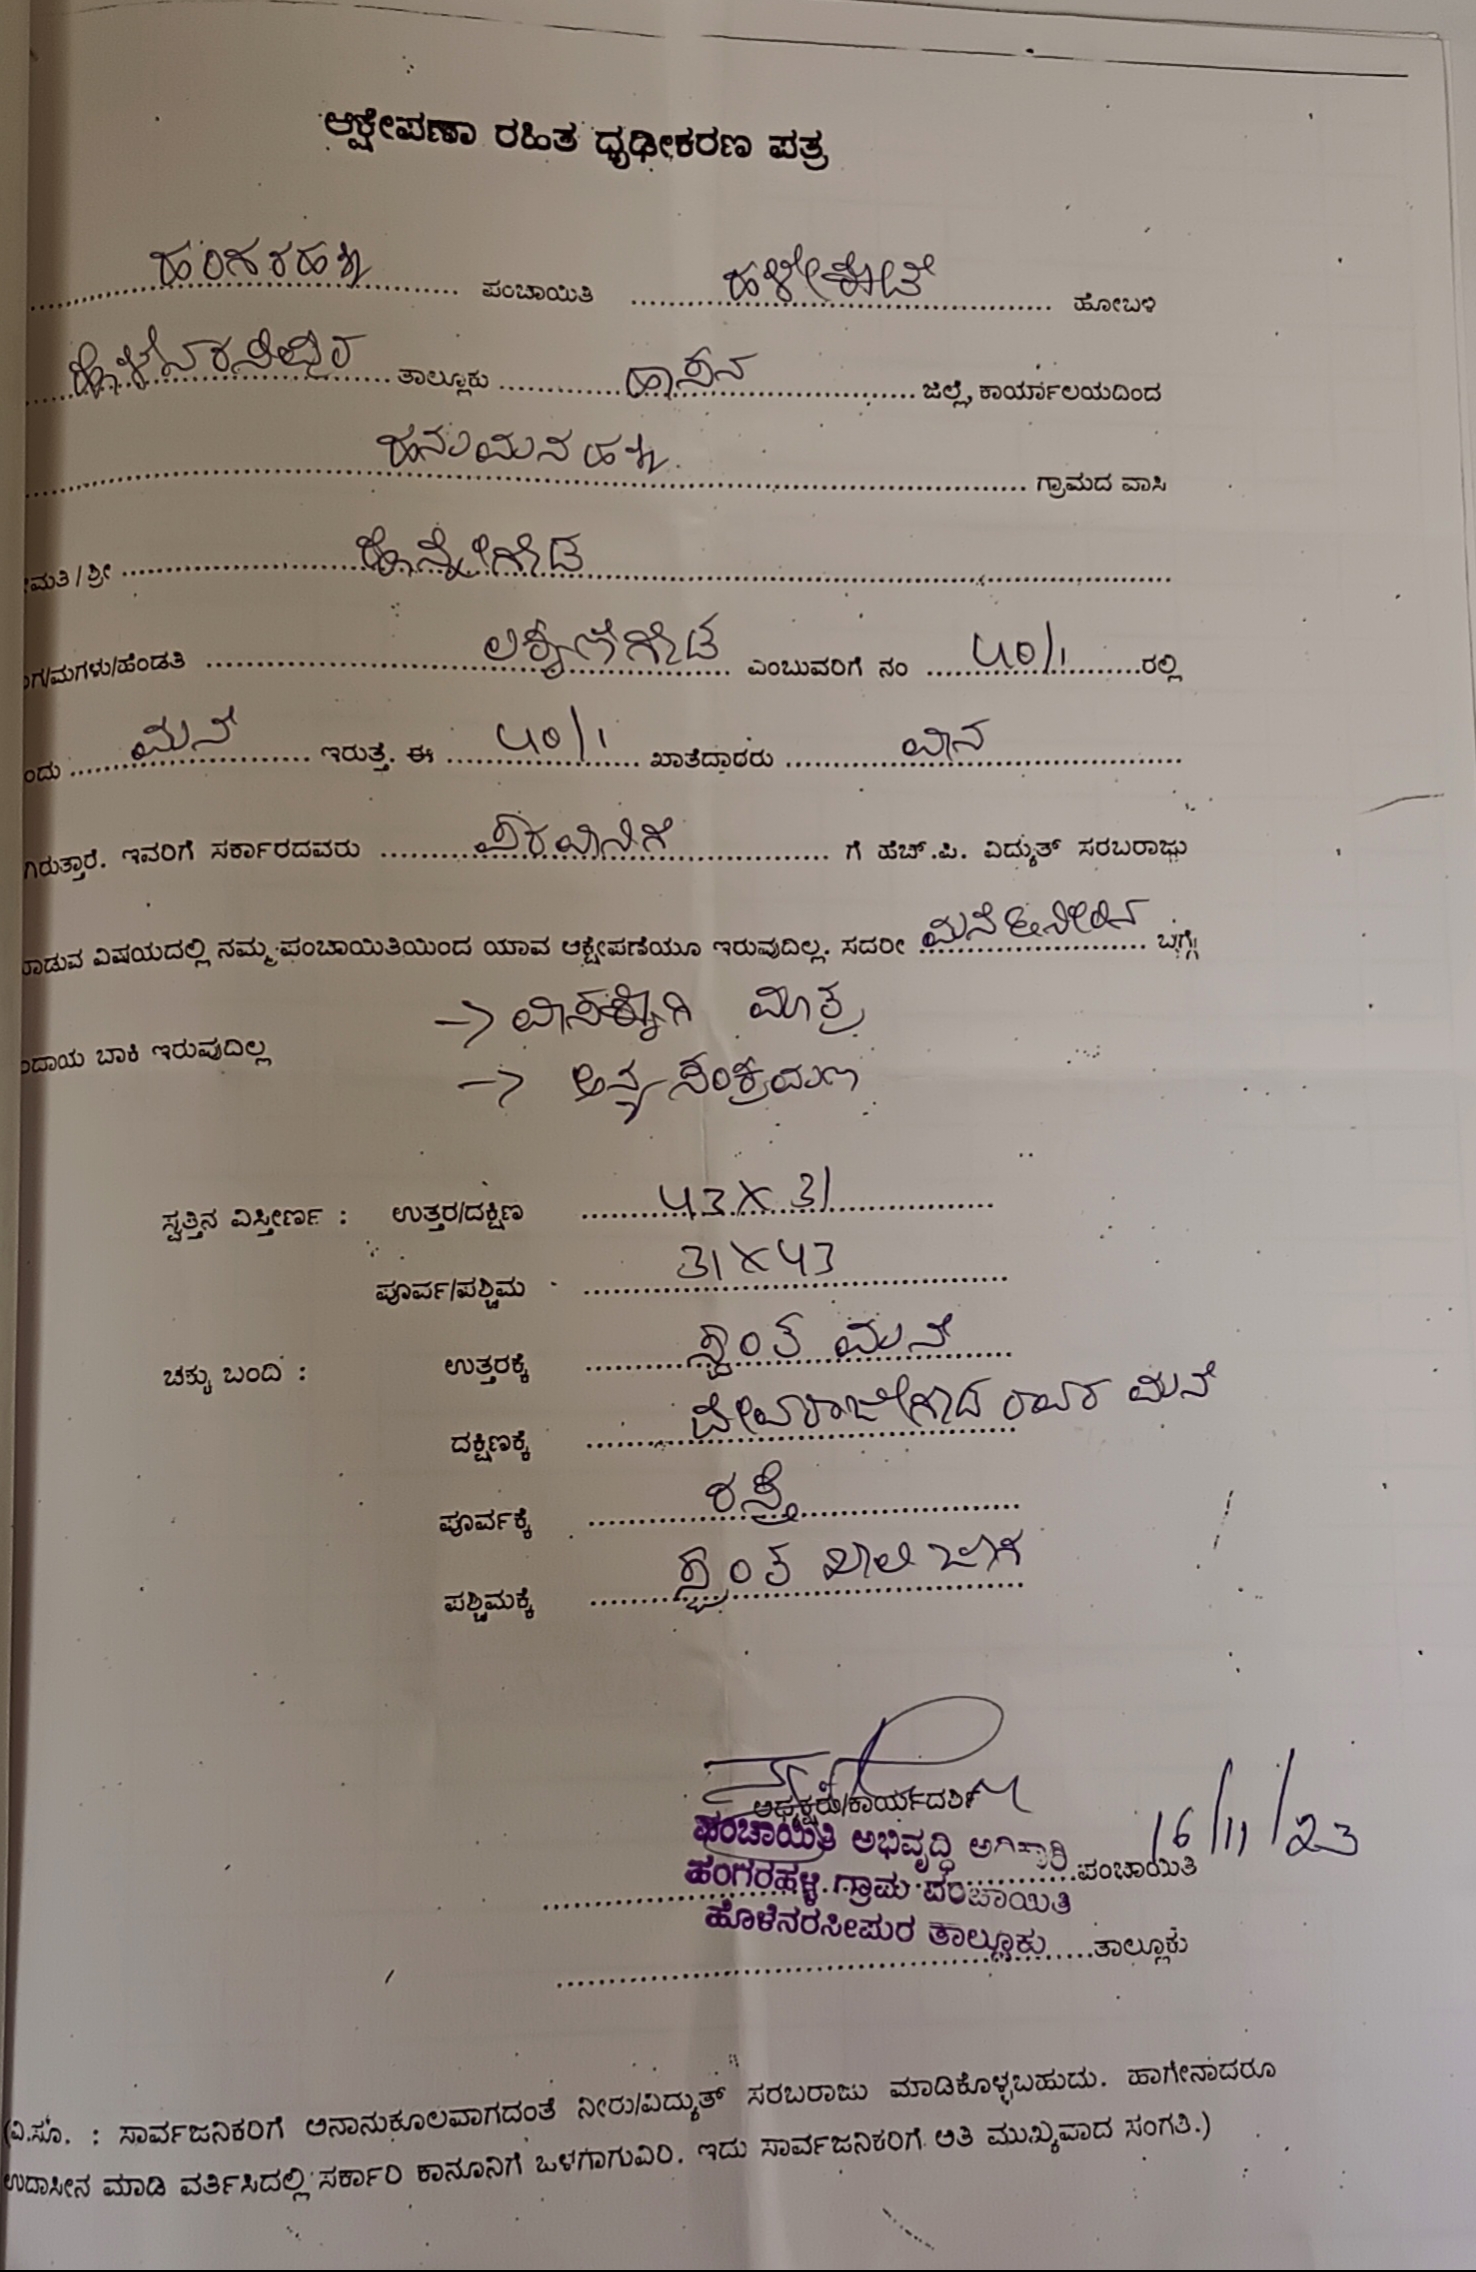 ಆಕ್ಷೇಪಣಾ ರಹಿತ ಧೃಢೀಕರಣ ಪತ್ರ
ಹಂಗರಹಳ್ಳಿ ಪಂಚಾಯಿತಿ ಹಳೇಕೋಟೆ ಹೋಬಳಿ
ಹೊಳೆನರಸೀಪುರ ತಾಲ್ಲೂಕು ಹಾಸನ ಜಿಲ್ಲೆ, ಕಾರ್ಯಾಲಯದಿಂದ
ಹನುಮನಹಳ್ಳಿ ಗ್ರಾಮದ ವಾಸಿ
ಮತಿ / ಶ್ರೀ ಹೊನ್ನೇಗೌಡ
ಗ/ಮಗಳು/ಹೆಂಡತಿ ಲಕ್ಕೇಗೌಡ ಎಂಬುವರಿಗೆ ನಂ 40/1 ರಲ್ಲಿ
ಂದು ಮನೆ ಇರುತ್ತೆ. ಈ 40/1 ಖಾತೆದಾರರು ವಾಸ
ಗಿರುತ್ತಾರೆ. ಇವರಿಗೆ ಸರ್ಕಾರದವರು ಪರವಾನಿಗೆ ಗೆ ಹೆಚ್.ಪಿ. ವಿದ್ಯುತ್ ಸರಬರಾಜು
ಾಡುವ ವಿಷಯದಲ್ಲಿ ನಮ್ಮ ಪಂಚಾಯಿತಿಯಿಂದ ಯಾವ ಆಕ್ಷೇಪಣೆಯೂ ಇರುವುದಿಲ್ಲ. ಸದರೀ ಮನೆ ಬಗ್ಗೆ
ಂದಾಯ ಬಾಕಿ ಇರುವುದಿಲ್ಲ
→ ವಾಸಕ್ಕಾಗಿ ಮಾತ್ರ
→ ಅನ್ಯಸಂಕ್ರಮಣ
ಸ್ವತ್ತಿನ ವಿಸ್ತೀರ್ಣ : ಉತ್ತರ/ದಕ್ಷಿಣ 43 X 31
ಪೂರ್ವ/ಪಶ್ಚಿಮ 31 X 43
ಚಕ್ಕು ಬಂದಿ : ಉತ್ತರಕ್ಕೆ ಸ್ವಂತ ಮನೆ
ದಕ್ಷಿಣಕ್ಕೆ ದೇವರಾಜೇಗೌಡ ರವರ ಮನೆ
ಪೂರ್ವಕ್ಕೆ ರಸ್ತೆ
ಪಶ್ಚಿಮಕ್ಕೆ ಸ್ವಂತ ಖಾಲಿ ಜಾಗ
ಅಧ್ಯಕ್ಷರು/ಕಾರ್ಯದರ್ಶಿ
ಪಂಚಾಯಿತಿ ಅಭಿವೃದ್ಧಿ ಅಧಿಕಾರಿ 16/11/23
ಹಂಗರಹಳ್ಳಿ ಗ್ರಾಮ ಪಂಚಾಯಿತಿ ಪಂಚಾಯಿತಿ
ಹೊಳೆನರಸೀಪುರ ತಾಲ್ಲೂಕು ತಾಲ್ಲೂಕು
(ವಿ.ಸೂ. : ಸಾರ್ವಜನಿಕರಿಗೆ ಅನಾನುಕೂಲವಾಗದಂತೆ ನೀರು/ವಿದ್ಯುತ್ ಸರಬರಾಜು ಮಾಡಿಕೊಳ್ಳಬಹುದು. ಹಾಗೇನಾದರೂ
ಉದಾಸೀನ ಮಾಡಿ ವರ್ತಿಸಿದಲ್ಲಿ ಸರ್ಕಾರಿ ಕಾನೂನಿಗೆ ಒಳಗಾಗುವಿರಿ. ಇದು ಸಾರ್ವಜನಿಕರಿಗೆ ಅತಿ ಮುಖ್ಯವಾದ ಸಂಗತಿ.)